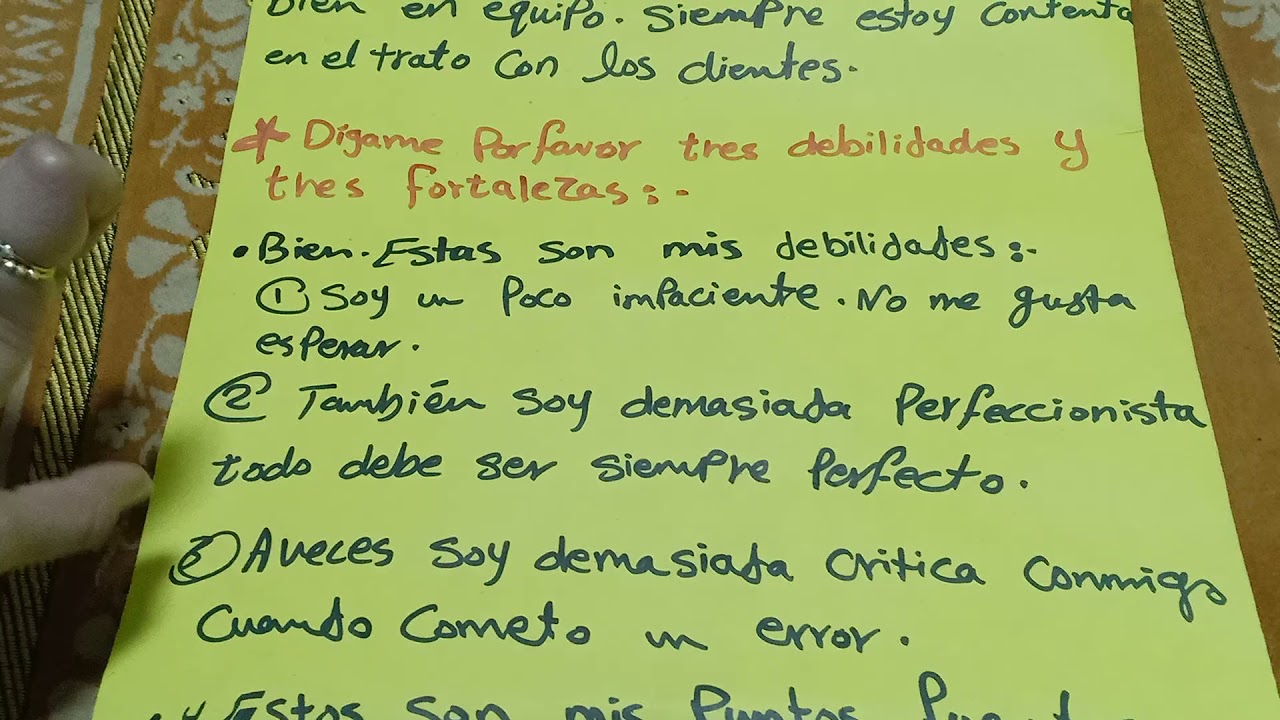 bien en equipo. siempre estoy contenta
en el trato con los clientes.
* Dígame Porfavor tres debilidades y
tres fortalezas:-
• Bien. Estas son mis debilidades:-
① Soy un Poco impaciente. No me gusta
esperar.
② También soy demasiada Perfeccionista
todo debe ser siempre Perfecto.
③ Aveces soy demasiada critica conmigo
cuando cometo un error.
Estos son mis Puntos